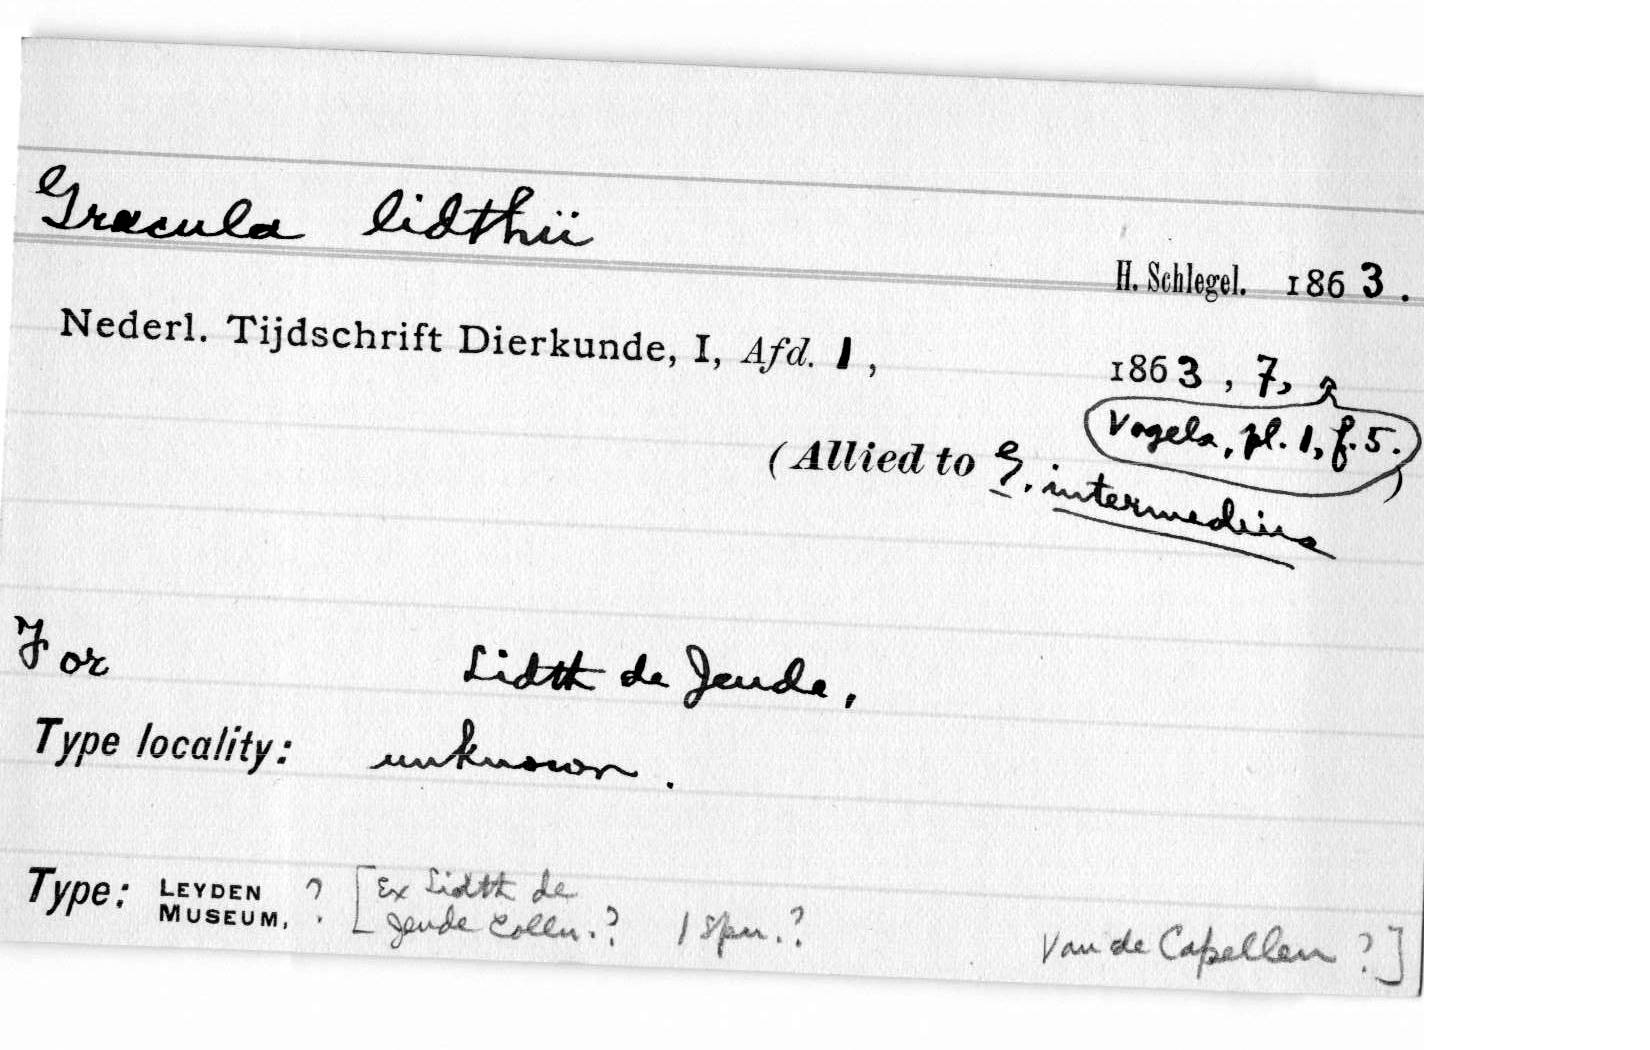 Gracula lidthii
H. Schlegel. 1863.
Nederl. Tijdschrift Dierkunde, I, Afd. 1,
1863, 7,
Vogels, pl. 1, f. 5.
(Allied to G. intermedius)
For Lidth de Jeude,
Type locality: unknown.
Type: LEYDEN MUSEUM, ? [Ex Lidth de
Jeude Colln.? 1 spm.? Van de Capellen ?]